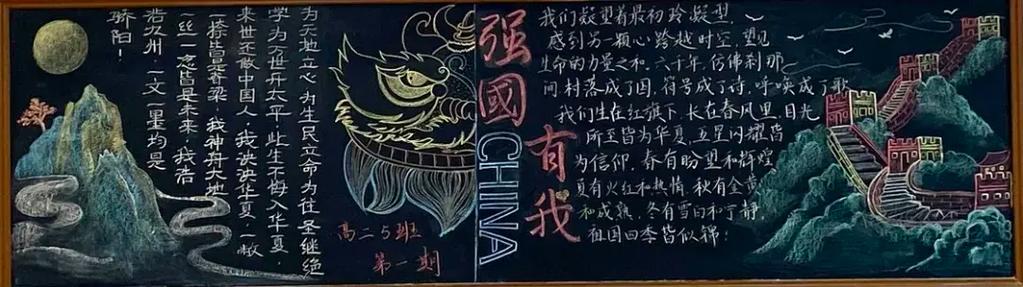 为天地立心 为生民立命 为往圣继绝
学 为万世开太平 此生不悔入华夏，
来世还做中国人，我泱泱华夏，一撇
一捺皆是脊梁，我神舟大地
一丝一念皆是未来，我浩
浩九州，一文一墨均是
骄阳！
高二5班
第一期
强國有我
CHINA
我们凝望着最初的凝望，
感到另一颗心跨越时空 望见
生命的力量之和. 六十年, 仿佛刹那
间村落成了国, 符号成了诗, 呼唤成了歌
我们生在红旗下, 长在春风里, 目光
所至皆为华夏, 五星闪耀皆
为信仰. 春有盼望和辉煌
夏有火红和热情 秋有金黄
和成熟, 冬有雪白和宁静,
祖国四季皆似锦!